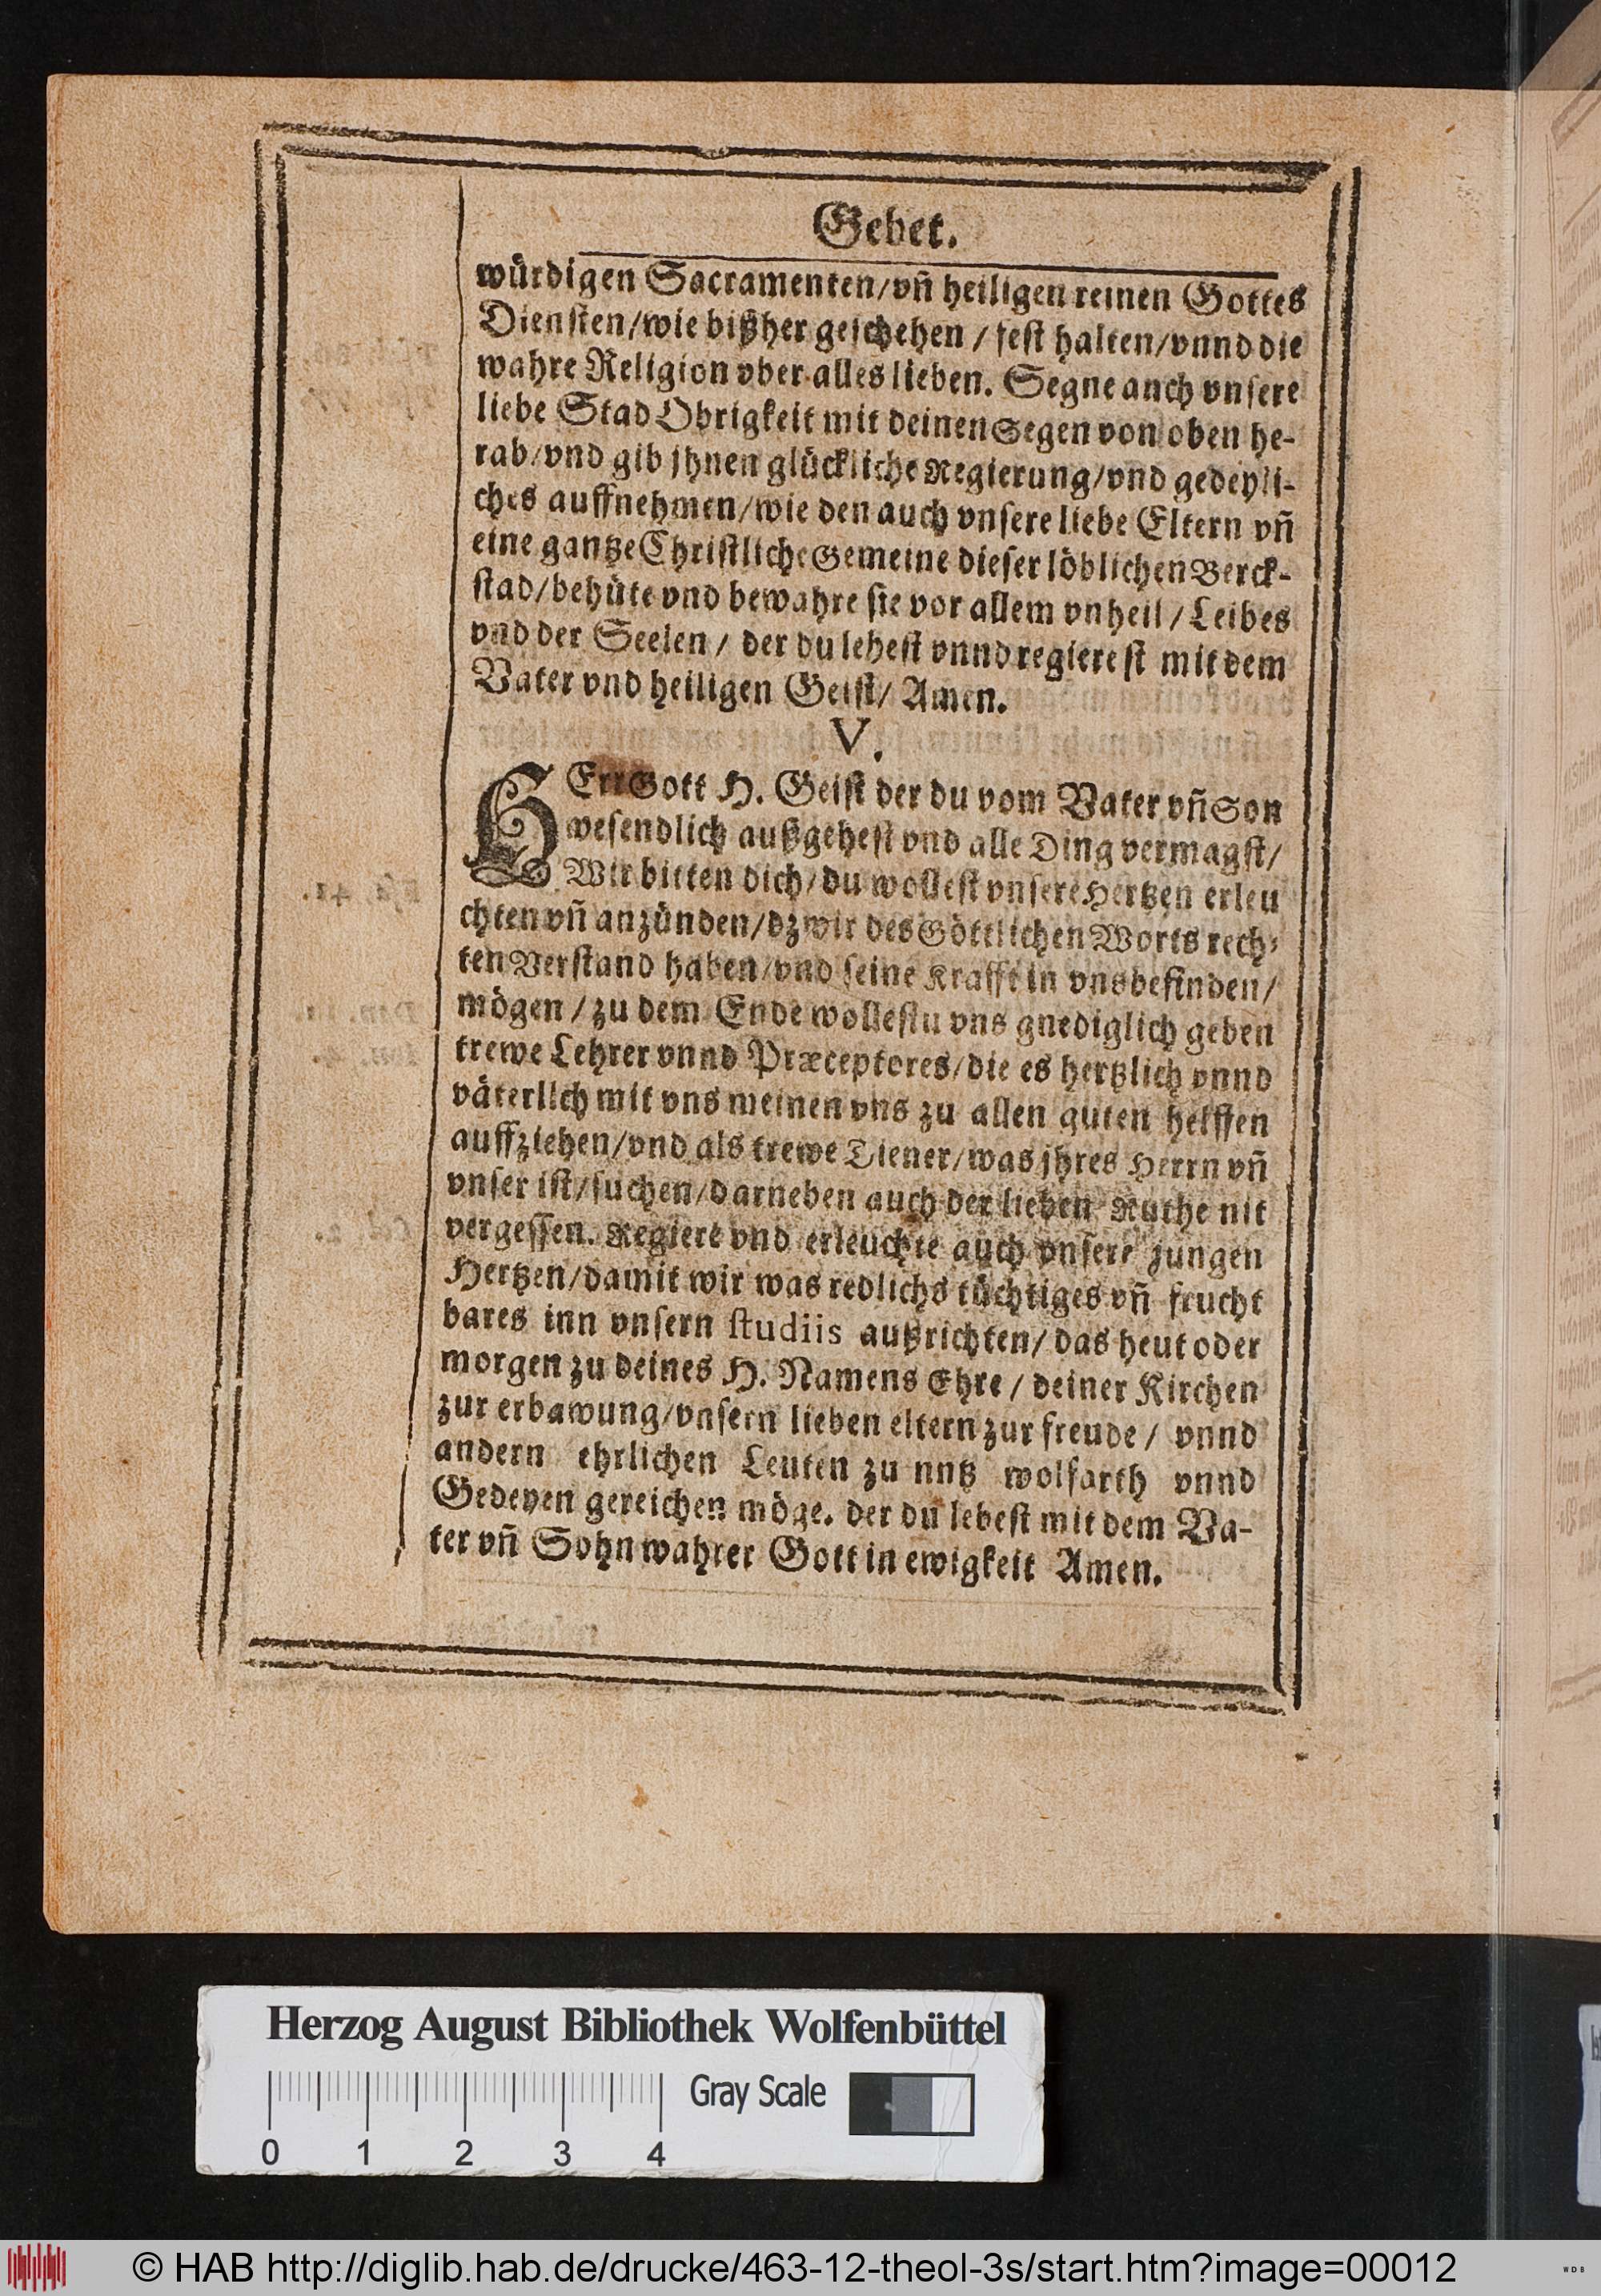 Gebet.
würdigen Sacramenten/vñ heiligen reinen Gottes
Diensten/wie bißher geschehen / fest halten/vnnd die
wahre Religion vber alles lieben. Segne auch vnsere
liebe Stad Obrigkeit mit deinen Segen von oben he-
rab/vnd gib jhnen glückliche Regierung/vnd gedeyli-
ches auffnehmen/wie den auch vnsere liebe Eltern vñ
eine gantze Christliche Gemeine dieser löblichen Berck-
stad/behüte vnd bewahre sie vor allem vnheil / Leibes
vnd der Seelen / der du lebest vnnd regierest mit dem
Vater vnd heiligen Geist/ Amen.
V.
HErr Gott H. Geist der du vom Vater vñ Son
wesendlich außgehest vnd alle Ding vermagst/
Wir bitten dich/du wollest vnsere Hertzen erleu
chten vñ anzünden/dz wir des Göttlichen Worts rech-
ten Verstand haben/vnd seine Krafft in vns befinden/
mögen / zu dem Ende wollestu vns gnediglich geben
trewe Lehrer vnnd Præceptores/die es hertzlich vnnd
väterlich mit vns meinen vns zu allen guten helffen
auffziehen/vnd als trewe Diener/was jhres Herrn vñ
vnser ist/suchen/darneben auch der lieben Ruthe nit
vergessen. Regiere vnd erleuchte auch vnsere jungen
Hertzen/damit wir was redlichs tüchtiges vñ frucht
bares inn vnsern studiis außrichten/das heut oder
morgen zu deines H. Namens Ehre / deiner Kirchen
zur erbawung/vnsern lieben eltern zur freude / vnnd
andern ehrlichen Leuten zu nntz wolfarth vnnd
Gedeyen gereichen möge. der du lebest mit dem Va-
ter vñ Sohn wahrer Gott in ewigkeit Amen.
Herzog August Bibliothek Wolfenbüttel
Gray Scale
0 1 2 3 4
© HAB http://diglib.hab.de/drucke/463-12-theol-3s/start.htm?image=00012
WDB